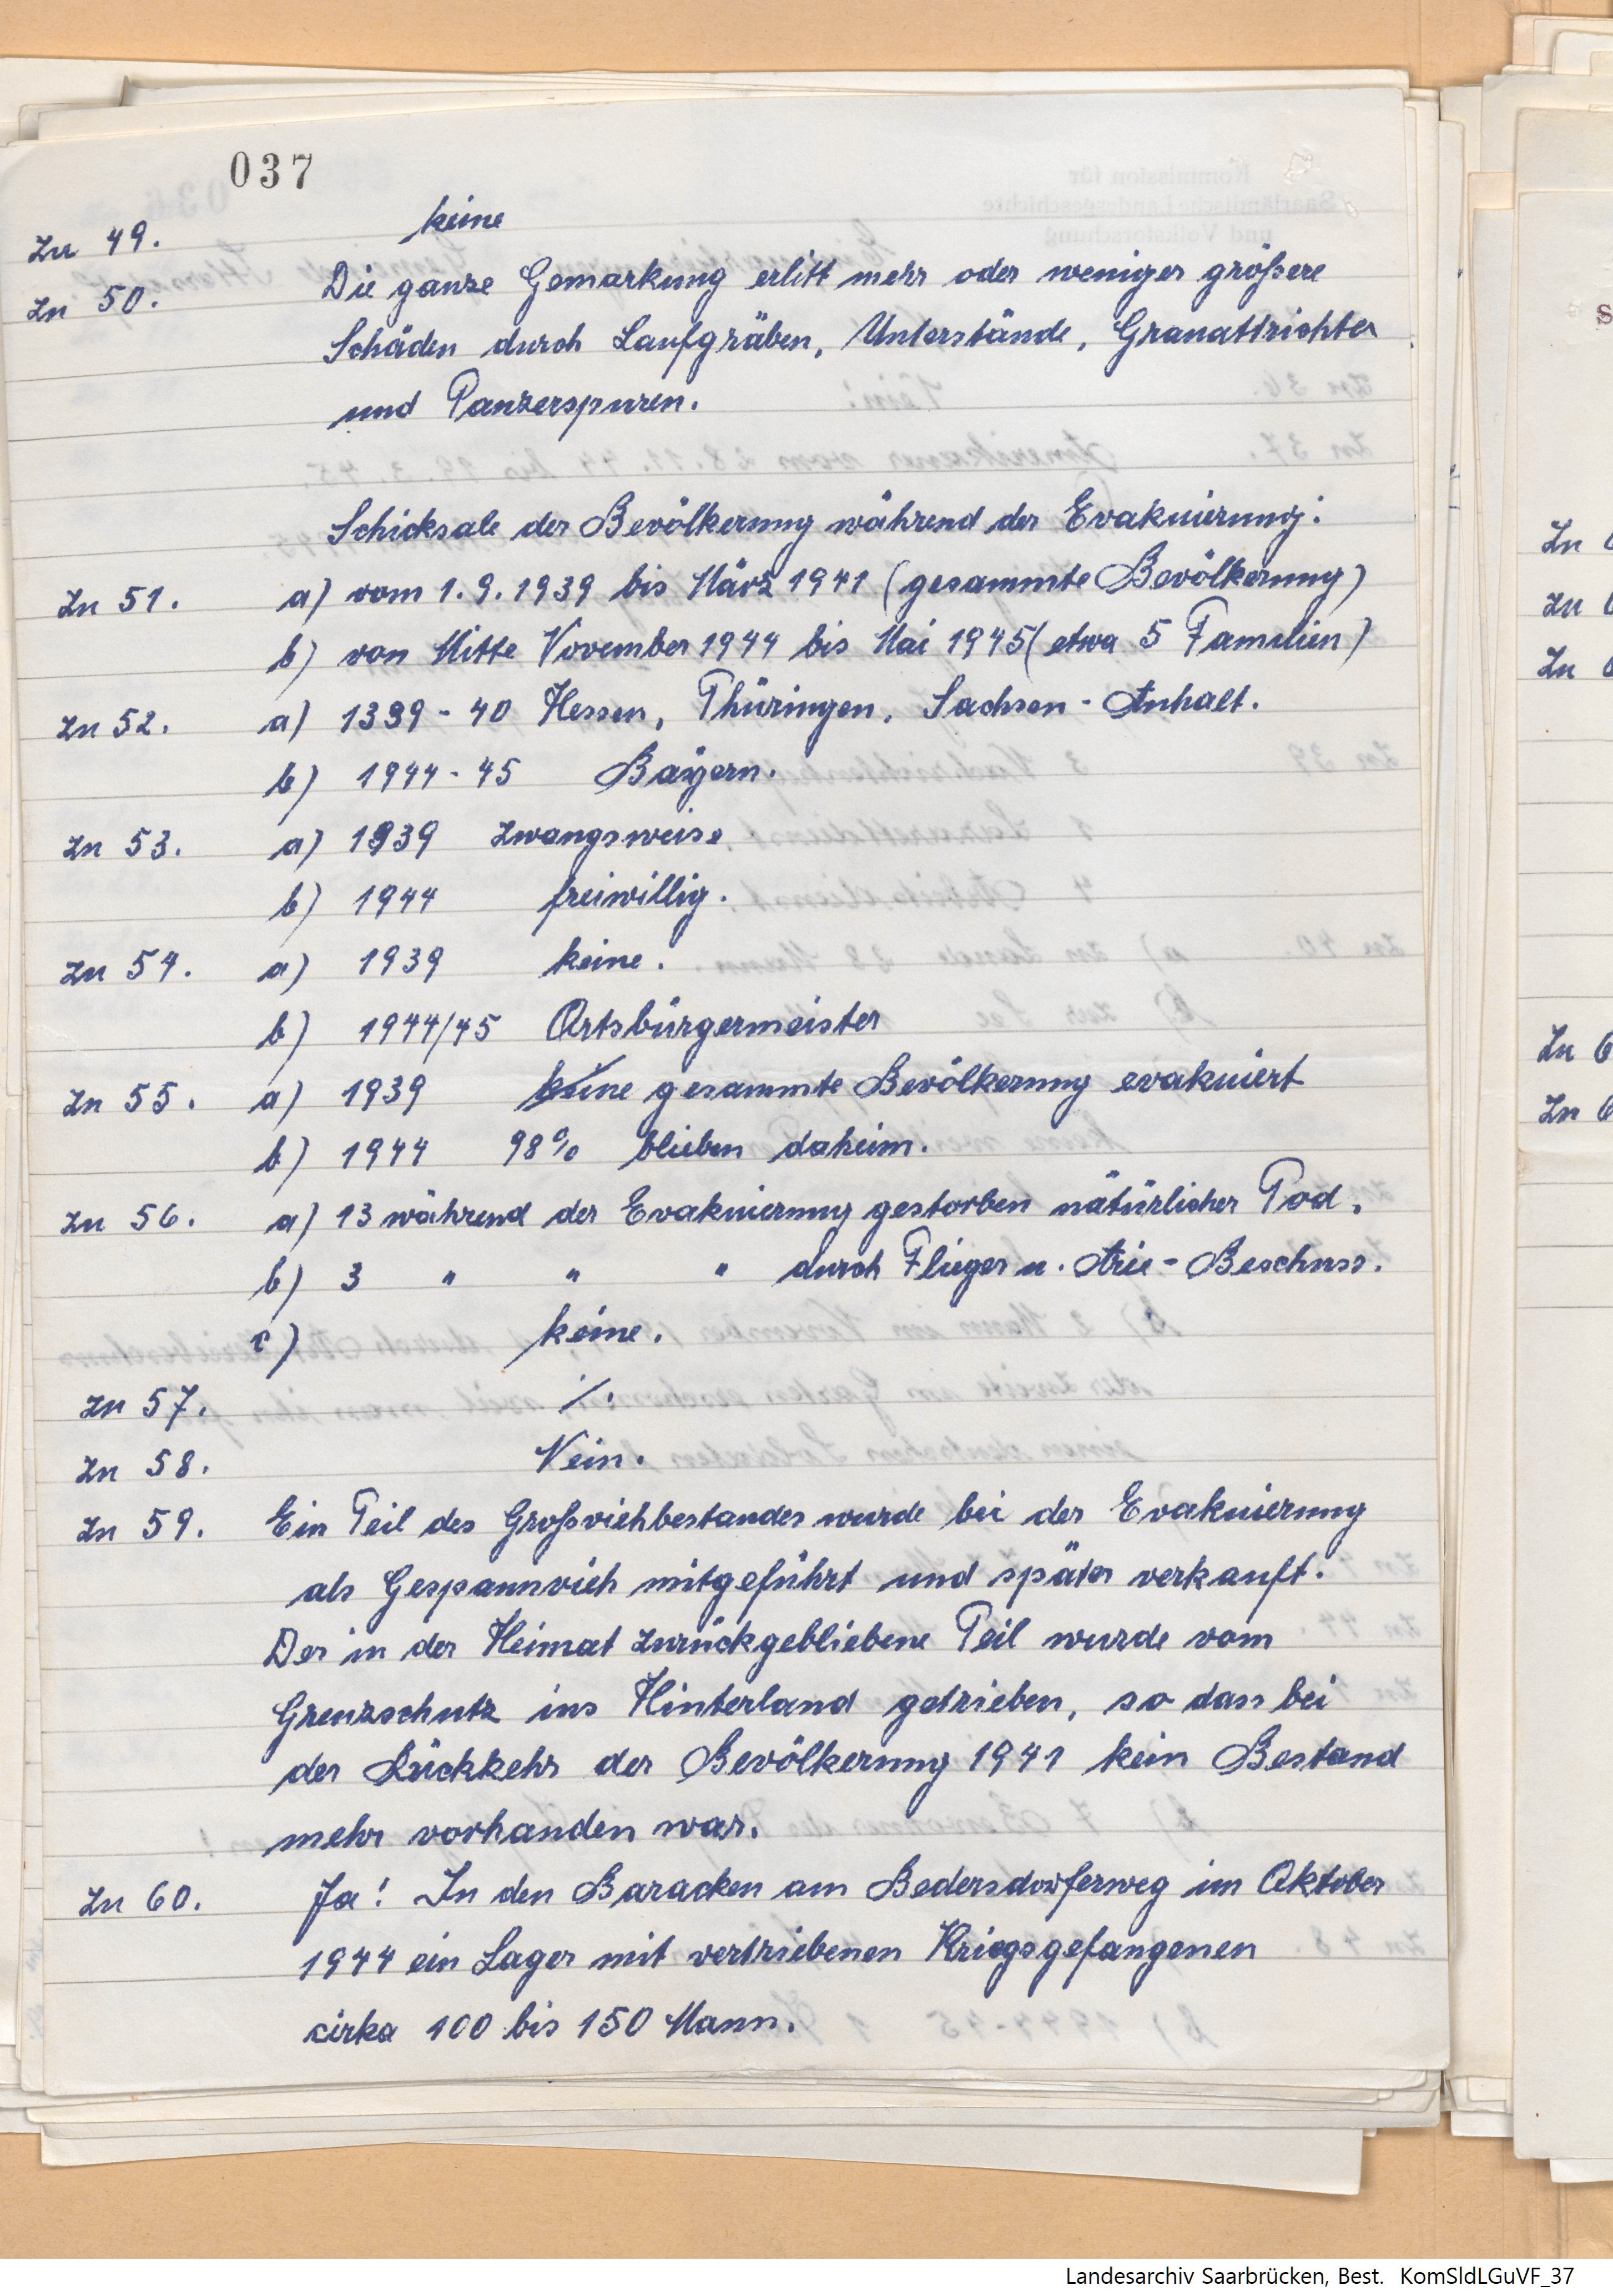 037
zu 49. keine
zu 50. Die ganze Gemarkung erlitt mehr oder weniger größere
Schäden durch Laufgräben, Unterstände, Granattrichter
und Panzerspuren.
Schicksale der Bevölkerung während der Evakuierung:
zu 51. a) vom 1.9.1939 bis März 1941 (gesammte Bevölkerung)
b) von Mitte November 1944 bis Mai 1945 (etwa 5 Familien)
zu 52. a) 1939-40 Hessen, Thüringen, Sachsen-Anhalt.
b) 1944-45 Bayern.
zu 53. a) 1939 zwangsweise.
b) 1944 freiwillig.
zu 54. a) 1939 keine.
b) 1944/45 Ortsbürgermeister
zu 55. a) 1939 keine gesammte Bevölkerung evakuiert
b) 1944 98% blieben daheim.
zu 56. a) 13 während der Evakuierung gestorben nätürlicher Tod.
b) 3 " " " durch Flieger u. Arie-Beschuss.
c) keine.
zu 57. ./.
zu 58. Nein.
zu 59. Ein Teil des Großviehbestandes wurde bei der Evakuierung
als Gespannvieh mitgeführt und später verkauft.
Der in der Heimat zurückgebliebene Teil wurde vom
Grenzschutz ins Hinterland getrieben, so dass bei
der Rückkehr der Bevölkerung 1941 kein Bestand
mehr vorhanden war.
zu 60. Ja! In den Baracken am Bedersdorferweg im Oktober
1944 ein Lager mit vertriebenen Kriegsgefangenen
cirka 100 bis 150 Mann.
Landesarchiv Saarbrücken, Best. KomSldLGuVF_37